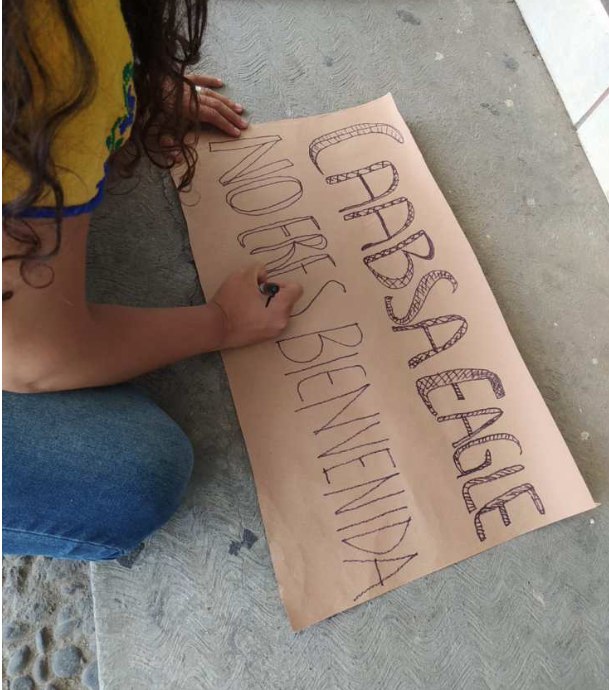 CAABSA EAGLE
NO ERES BIENVENIDA